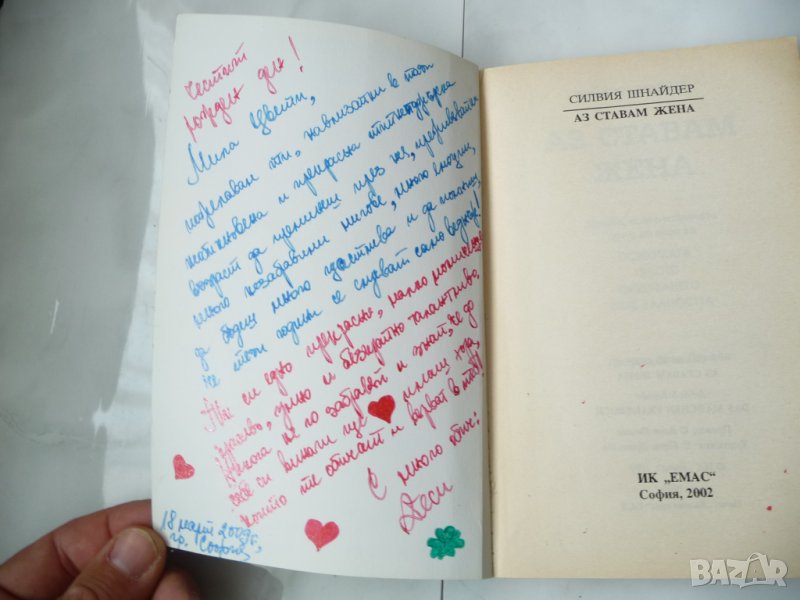 Честит
рожден ден!
Мила Цвети,
пожелавам ти, навлизайки в тази
и прекрасна
възраст да през нея, преживявайки
много незабравими мигове, много емоции,
да бъдеш много щастлива и да помниш,
че тези години се случват само веднъж!
Ти си едно прекрасно, малко момиченце,
красиво, умно и безкрайно талантливо,
Никога не го забравяй и знай, че до
себе си винаги ще имаш хора,
които те обичат и вярват в теб!
С много обич:
Деси
18 март 2009г.
гр. София
СИЛВИЯ ШНАЙДЕР
АЗ СТАВАМ ЖЕНА
ИК „ЕМАС“
София, 2002
BAZAR